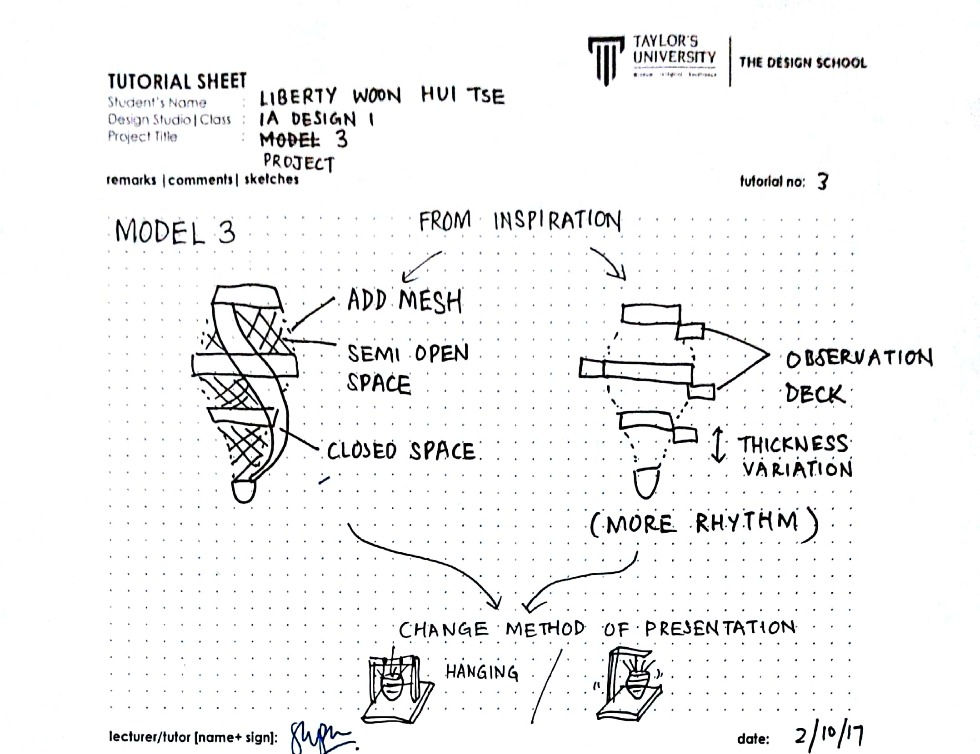 TAYLOR'S
UNIVERSITY
THE DESIGN SCHOOL
TUTORIAL SHEET
Student's Name : LIBERTY WOON HUI TSE
Design Studio|Class : IA DESIGN 1
Project Title : MODEL 3
PROJECT
remarks |comments| sketches
tutorial no: 3
MODEL 3
FROM INSPIRATION
ADD MESH
SEMI OPEN
SPACE
CLOSED SPACE
OBSERVATION
DECK
THICKNESS
VARIATION
(MORE RHYTHM)
CHANGE METHOD OF PRESENTATION
HANGING
lecturer/tutor [name+ sign]:
date: 2/10/17